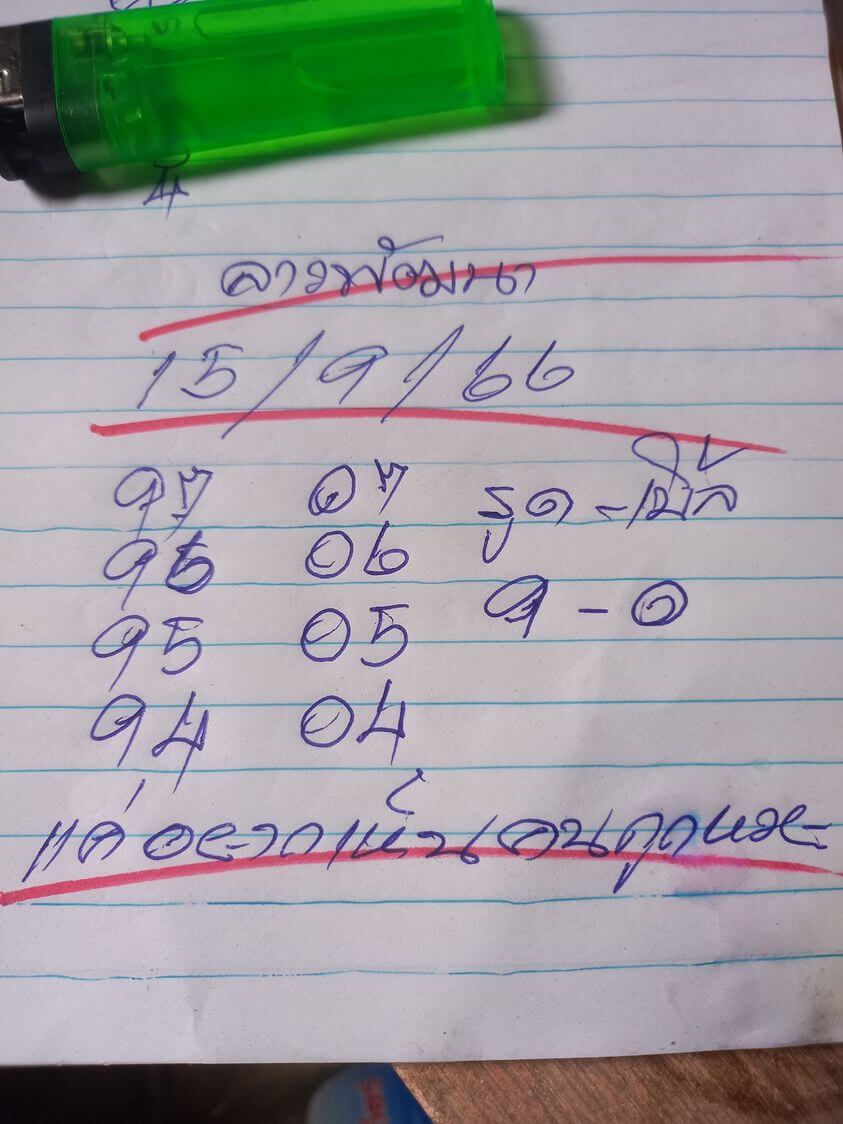 ลาวพัฒนา
15/9/66
97 07 รูด-เบิ้ล
96 06 9-0
95 05
94 04
แค่อยากเห็นคนถูกหวย